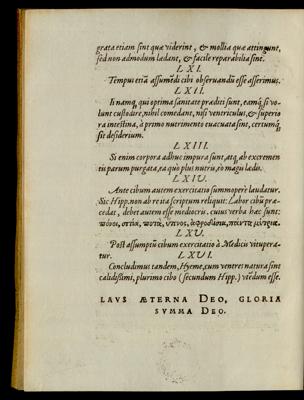 grata etiam sint quæ viderint, & mollia quæ attingunt,
sed non admodum lædant, & facile reparabilia sint.
LXI.
Tempus etiã assumẽdi cibi observandũ esse asserimus.
LXII.
Ii namq́, qui optima sanitate præditi sunt, eamq́ si vo-
lunt custodire, nihil comedant, nisi ventriculus, & superio
ra intestina, à primo nutrimento evacuata sint, certumq́
sit desiderium.
LXIII.
Si enim corpora adhuc impura sunt, atq́ ab excremen
tis parum purgata, ea quò plus nutris, eò magis lædis.
LXIV.
Ante cibum autem exercitatio summoperè laudatur.
Sic Hipp. non ab re ita scriptum reliquit: Labor cibũ præ-
cedat, debet autem esse mediocris. cuius verba hæc sunt:
πόνοι, σιτία, ποτὰ, ὕπνος, ἀφροδίσια, πάντα μέτρια.
LXV.
Post assumptũ cibum exercitatio à Medicis vitupera-
tur.
LXVI.
Concludimus tandem, Hyeme, cum ventres natura sint
calidissimi, plurimo cibo (secundum Hipp.) utẽdum esse.
LAVS ÆTERNA DEO, GLORIA
SVMMA DEO.